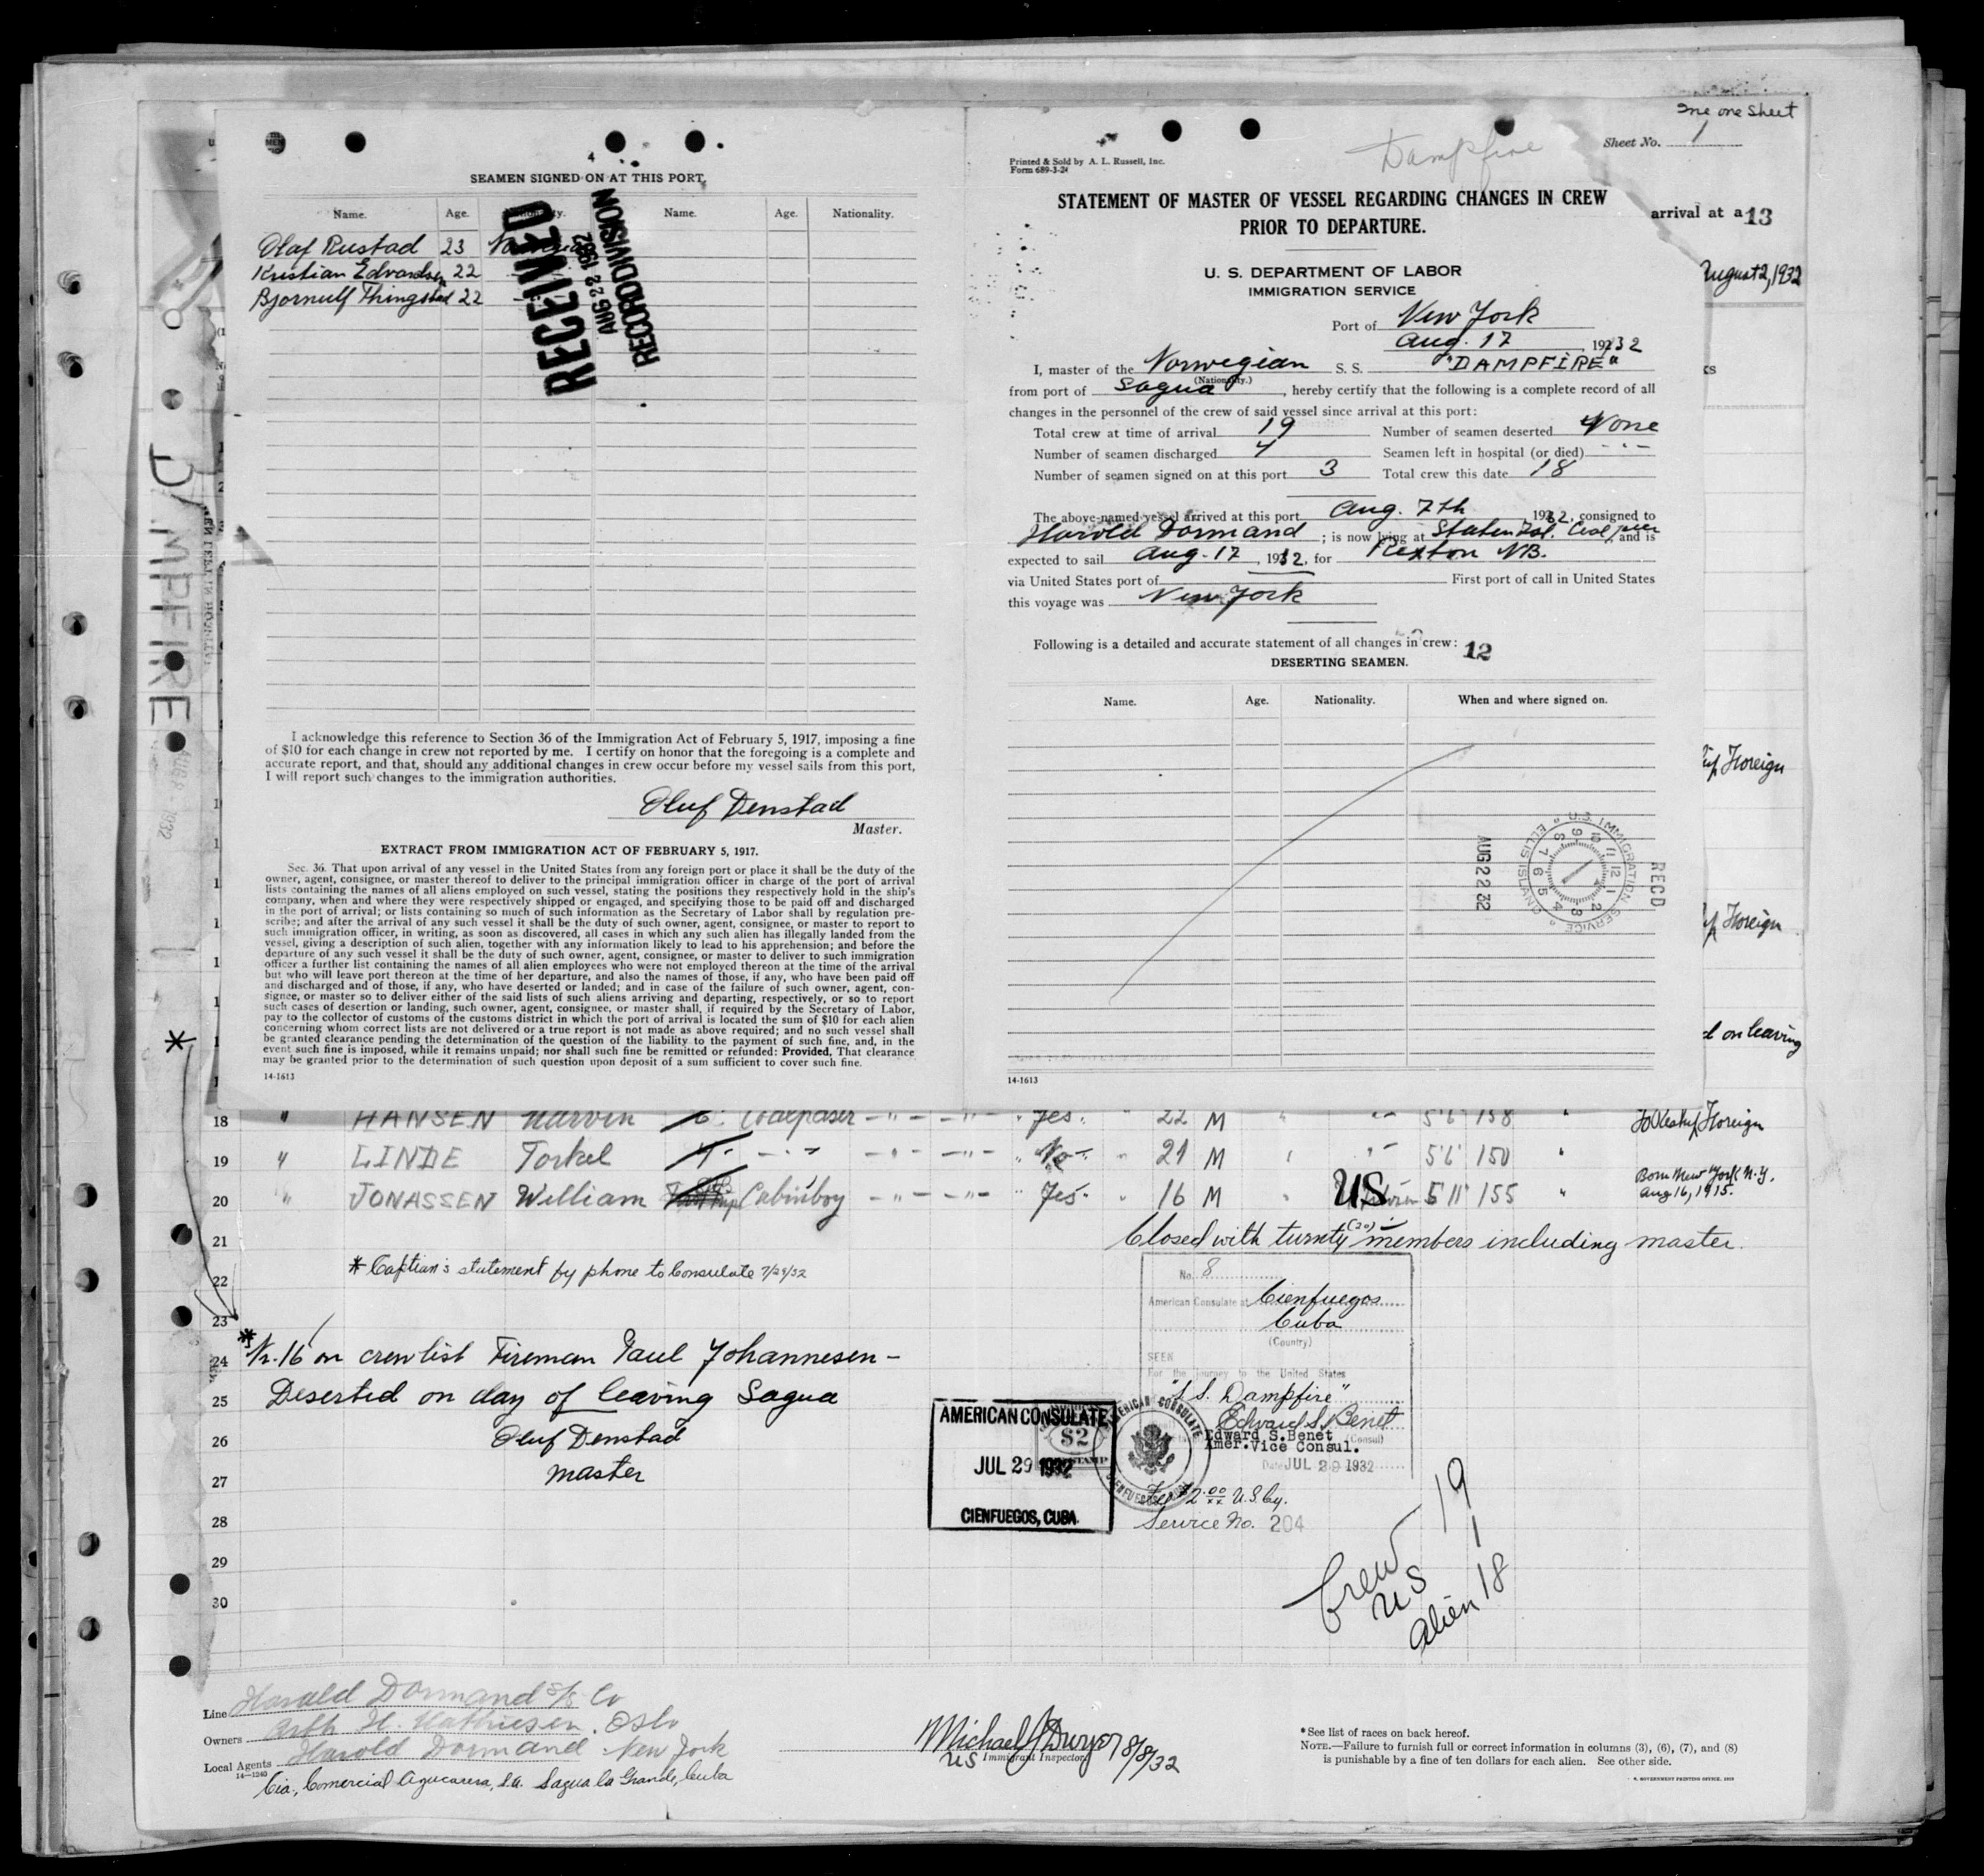 SEAMEN SIGNED ON AT THIS PORT.
Name. Age. Nationality. Name. Age. Nationality.
Olaf Rustad 23 Norwegian
Kristian Edvardsen 22
Bjornulf Thingstad 22
RECEIVED
AUG 22 1932
RECORD DIVISION
I acknowledge this reference to Section 36 of the Immigration Act of February 5, 1917, imposing a fine
of $10 for each change in crew not reported by me. I certify on honor that the foregoing is a complete and
accurate report, and that, should any additional changes in crew occur before my vessel sails from this port,
I will report such changes to the immigration authorities.
Oluf Denstad
Master.
EXTRACT FROM IMMIGRATION ACT OF FEBRUARY 5, 1917.
Sec. 36. That upon arrival of any vessel in the United States from any foreign port or place it shall be the duty of the
owner, agent, consignee, or master thereof to deliver to the principal immigration officer in charge of the port of arrival
lists containing the names of all aliens employed on such vessel, stating the positions they respectively hold in the ship's
company, when and where they were respectively shipped or engaged, and specifying those to be paid off and discharged
in the port of arrival; or lists containing so much of such information as the Secretary of Labor shall by regulation pre-
scribe; and after the arrival of any such vessel it shall be the duty of such owner, agent, consignee, or master to report to
such immigration officer, in writing, as soon as discovered, all cases in which any such alien has illegally landed from the
vessel, giving a description of such alien, together with any information likely to lead to his apprehension; and before the
departure of any such vessel it shall be the duty of such owner, agent, consignee, or master to deliver to such immigration
officer a further list containing the names of all alien employees who were not employed thereon at the time of the arrival
but who will leave port thereon at the time of her departure, and also the names of those, if any, who have been paid off
and discharged and of those, if any, who have deserted or landed; and in case of the failure of such owner, agent, con-
signee, or master so to deliver either of the said lists of such aliens arriving and departing, respectively, or so to report
such cases of desertion or landing, such owner, agent, consignee, or master shall, if required by the Secretary of Labor,
pay to the collector of customs of the customs district in which the port of arrival is located the sum of $10 for each alien
concerning whom correct lists are not delivered or a true report is not made as above required; and no such vessel shall
be granted clearance pending the determination of the question of the liability to the payment of such fine, and, in the
event such fine is imposed, while it remains unpaid; nor shall such fine be remitted or refunded: Provided, That clearance
may be granted prior to the determination of such question upon deposit of a sum sufficient to cover such fine.
14-1613
DAMPFIRE
AUG 8 - 1932
one sheet
Dampfire
Sheet No. 1
Printed & Sold by A. L. Russell, Inc.
Form 689-3-24
STATEMENT OF MASTER OF VESSEL REGARDING CHANGES IN CREW
PRIOR TO DEPARTURE.
arrival at a 13
U. S. DEPARTMENT OF LABOR
IMMIGRATION SERVICE
August 2, 1932
Port of New York
Aug. 17, 1932
I, master of the Norwegian S. S. "DAMPFIRE"
(Nationality.)
from port of Sagua, hereby certify that the following is a complete record of all
changes in the personnel of the crew of said vessel since arrival at this port:
Total crew at time of arrival 19 Number of seamen deserted None
Number of seamen discharged 4 Seamen left in hospital (or died) - " -
Number of seamen signed on at this port 3 Total crew this date 18
The above-named vessel arrived at this port Aug. 7th, 1932, consigned to
Harold Dormand; is now lying at Staten Isl. Coal pier, and is
expected to sail Aug. 17, 1932, for Rexton NB.
via United States port of First port of call in United States
this voyage was New York
Following is a detailed and accurate statement of all changes in crew: 12
DESERTING SEAMEN.
Name. Age. Nationality. When and where signed on.
U.S. IMMIGRATION SERVICE ELLIS ISLAND
AUG 22 32
REC'D
14-1613
Foreign
Foreign
on leaving
18 " HANSEN Marvin Coalpaser - " - - " - " Yes. 22 M 5'6 158 " Foreign
19 " LINDE Torkel - " - " No 21 M 5'6 150 "
20 " JONASSEN William Cabinboy - " - - " - " Yes 16 M US 5 11 155 " Born New York N.Y.
Aug 16, 1915.
21 Closed with twenty (20) members including master.
22 * Captian's statement by phone to Consulate 7/29/32
23
24 * Nr. 16 on crewlist Fireman Paul Johannesen -
25 Deserted on day of leaving Sagua
26 Oluf Denstad
27 Master
28
29
30
No. 8
American Consulate at Cienfuegos
Cuba
(Country)
SEEN
For the journey to the United States
"S.S. Dampfire"
Edward S. Benet
Edward S. Benet (Consul)
Amer. Vice Consul.
Date JUL 29 1932
AMERICAN CONSULATE
JUL 29 1932
CIENFUEGOS, CUBA.
$2
AMERICAN CONSULATE CIENFUEGOS, CUBA
Fee $2.00 U.S. Cy.
Service No. 204
Crew 19
US 1
Alien 18
Line Harald Dormand S/S Co
Owners Arth. H. Mathiesen, Oslo
Local Agents Harold Dormand New York
14-1240
Cia. Comercial Azucarera, S.A. Sagua la Grande, Cuba
Michael J Dwyer 8/8/32
US Immigrant Inspector
* See list of races on back hereof.
NOTE.—Failure to furnish full or correct information in columns (3), (6), (7), and (8)
is punishable by a fine of ten dollars for each alien. See other side.
U. S. GOVERNMENT PRINTING OFFICE